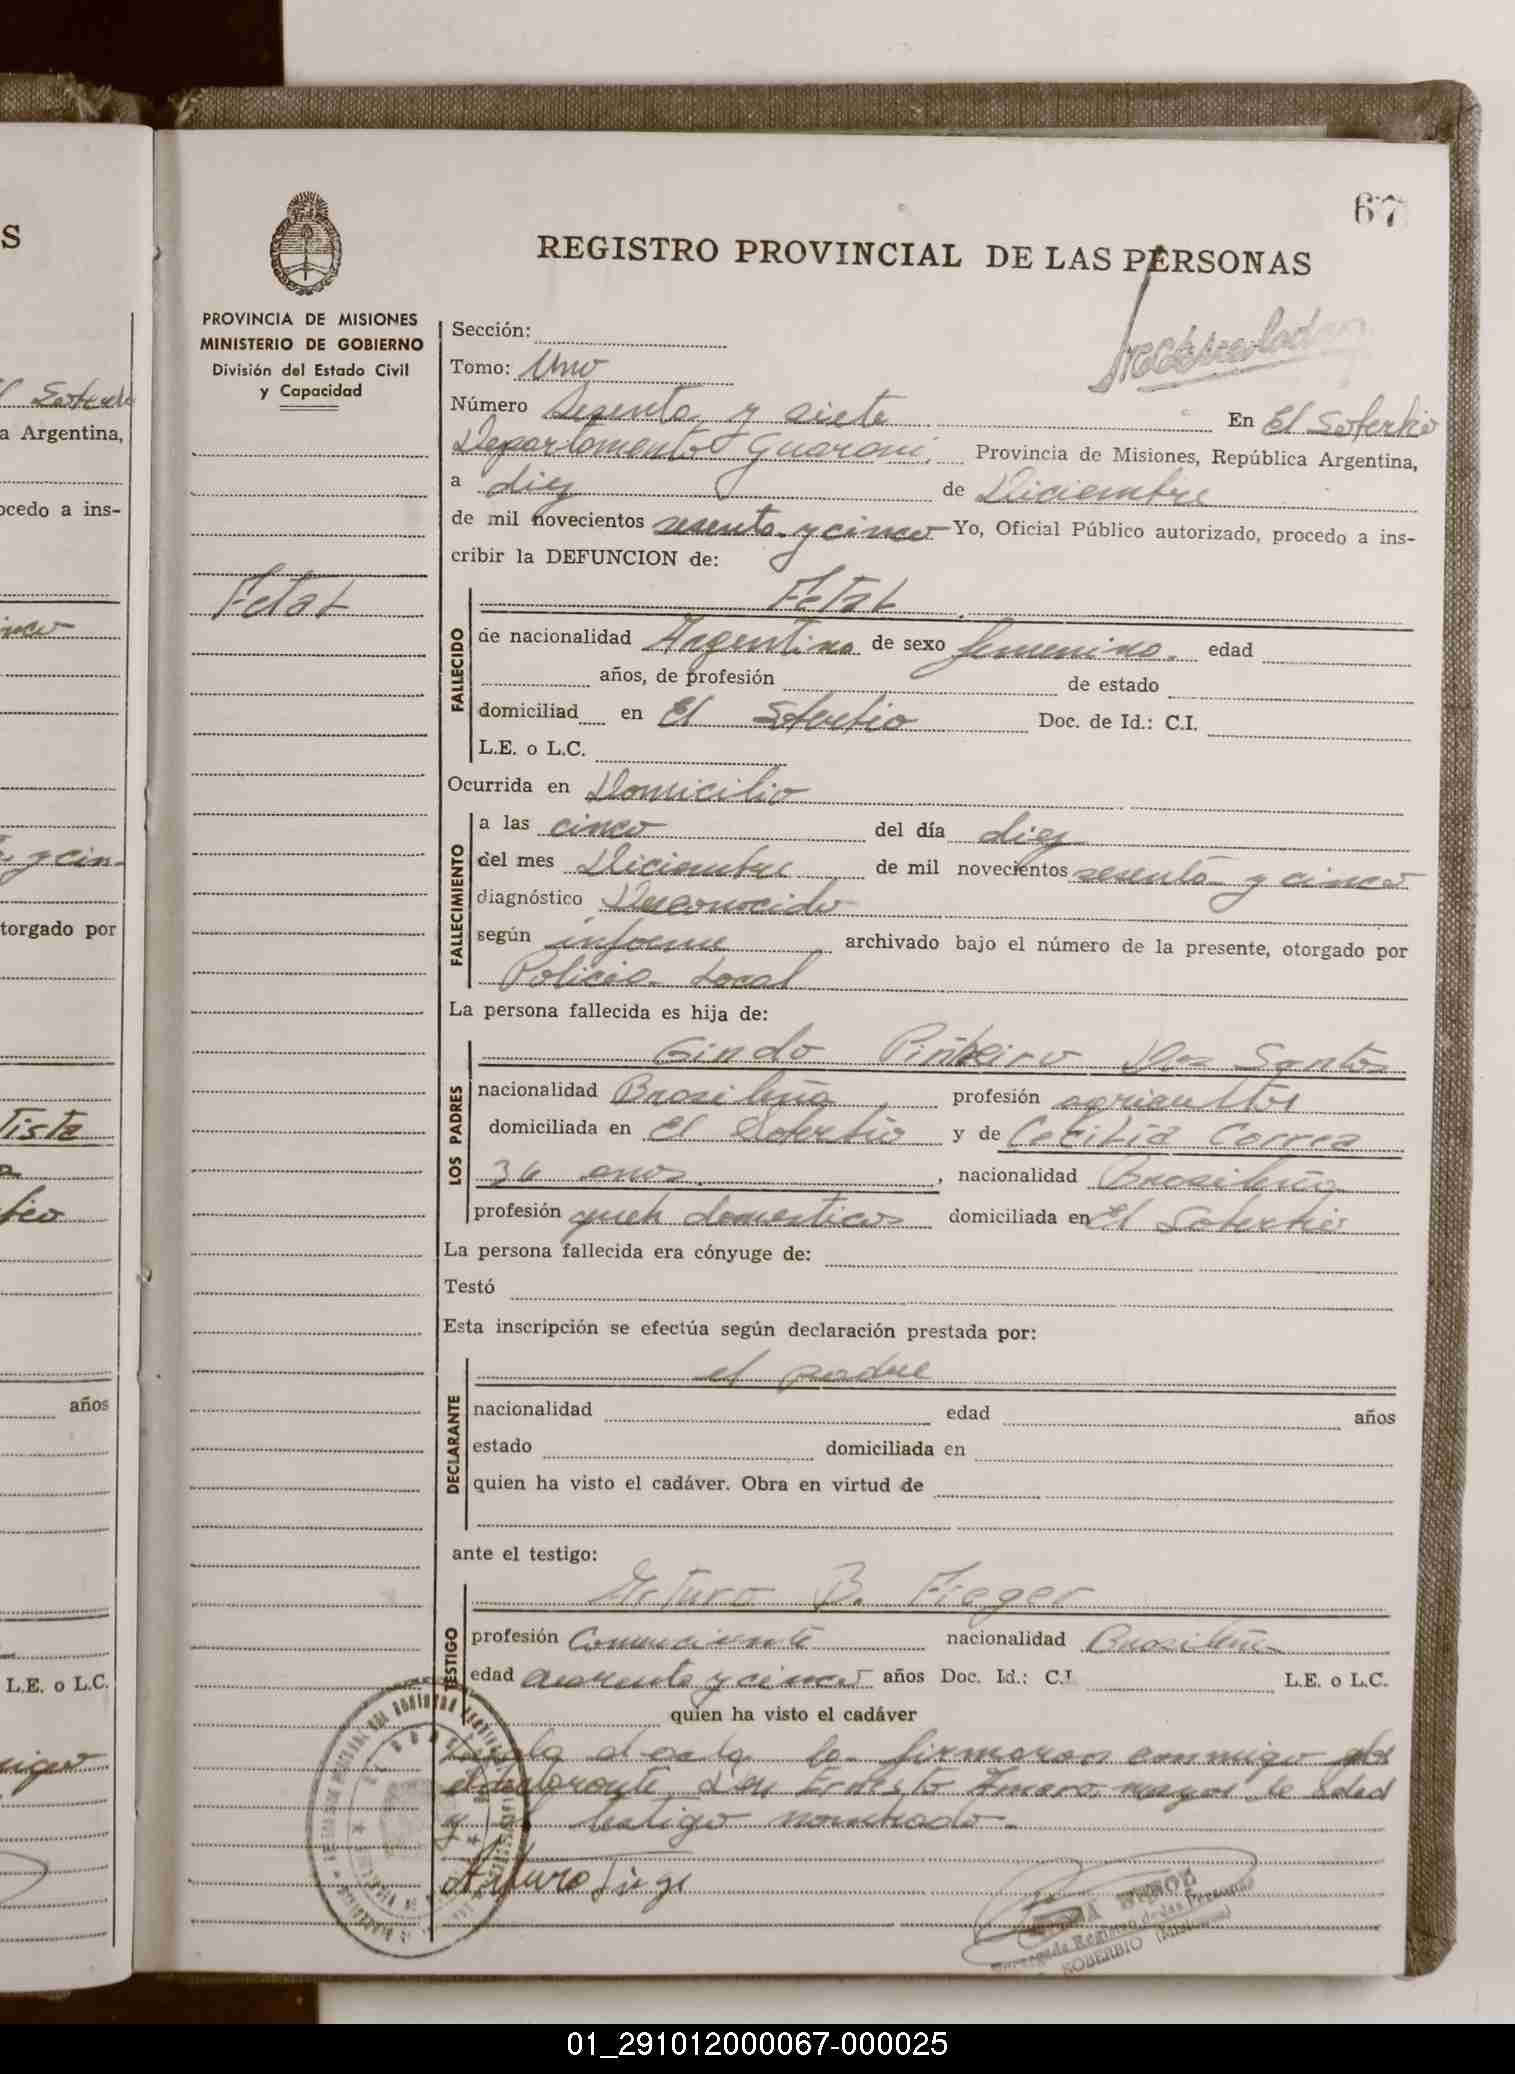 67
REGISTRO PROVINCIAL DE LAS PERSONAS
PROVINCIA DE MISIONES
MINISTERIO DE GOBIERNO
División del Estado Civil
y Capacidad
Fetal
Sección:
Tomo: Uno
Número Sesenta y siete En El Soberbio
Departamento Guaraní, Provincia de Misiones, República Argentina,
a diez de Diciembre
de mil novecientos sesenta y cinco Yo, Oficial Público autorizado, procedo a ins-
cribir la DEFUNCION de:
Fetal
FALLECIDO
de nacionalidad Argentina de sexo femenino. edad
años, de profesión de estado
domiciliad en El Soberbio Doc. de Id.: C.I.
L.E. o L.C.
Ocurrida en Domicilio
FALLECIMIENTO
a las cinco del día diez
del mes Diciembre de mil novecientos sesenta y cinco
diagnóstico Desconocido
según informe archivado bajo el número de la presente, otorgado por
Policia Local
La persona fallecida es hija de:
LOS PADRES
Gindo Piñheiro Dos Santos
nacionalidad Brasileña profesión agricultor
domiciliada en El Soberbio y de Cecilia Correa
34 anos, nacionalidad Brasileña
profesión queh domesticos domiciliada en El Soberbio
La persona fallecida era cónyuge de:
Testó
Esta inscripción se efectúa según declaración prestada por:
DECLARANTE
el padre
nacionalidad edad años
estado domiciliada en
quien ha visto el cadáver. Obra en virtud de
ante el testigo:
TESTIGO
Arturo B. Fieger
profesión Comerciante nacionalidad Brasileña
edad cuarenta y cinco años Doc. Id.: C.I. L.E. o L.C.
quien ha visto el cadáver
Leida el acta la firmaran conmigo por
el declarante Don Ernesto Amaro, mayor de edad
y el testigo nombrado.
Arturo
Encargada Registro de las Personas
SOBERBIO (Misiones)
S
El Soberbio
a Argentina,
ocedo a ins-
y cin-
torgado por
años
L.E. o L.C.
01_291012000067-000025